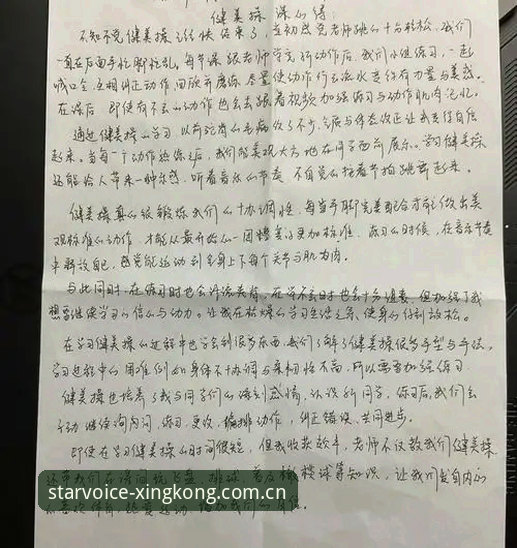 健美操课心得:
不知不觉健美操已经快结束了,老师跳的十分轻松,我们
一直在后面手忙脚乱。每节课跟老师学完新动作后,我们小组练习,一起
喊口令,互相纠正动作,尽量使动作行云流水且富有力量与美感。
在课后,即使有不会的动作也会去跟着视频加强练习与动作肌肉记忆。
通过健美操的学习,以前的毛病改了不少,体态改正让我变得自信
起来。当每一个动作熟练之后,我们能美观大方地展示。学习健美操
还能给人带来一种乐感,听着音乐的节奏,不自觉的在节拍跳舞起来。
健美操真的很锻炼我们的协调性,每当手脚完美配合才能做出美
观标准的动作,才能从最开始的更加标准。练习的时候,在音乐节奏
中释放自己,感觉能运动到全身上下每个关节与肌肉。
与此同时,在练习时也会,在学不会时也会十分,但加强了我
想要继续学习的信心与动力。让我在枯燥的学习生活之余,使身心得到放松。
在学习健美操的过程中也学会到很多东西,我们了解了健美操很多手型与手法,
学习过程中的困难例如身体不协调,柔韧性不高,所以需要加强练习
健美操也培养了我与同学们的深刻感情,认识新同学,练习后我们会
主动继续询问,练习,更改,编排动作,纠正错误,共同进步。
即使在学习健美操的时间很短,但我收获颇丰,老师不仅教我们健美操,
还带我们在课间玩飞盘、排球、普及橄榄球等知识,让我们发自内心
的喜欢体育,热爱运动,增加我们的
starvoice-xingkong.com.cn